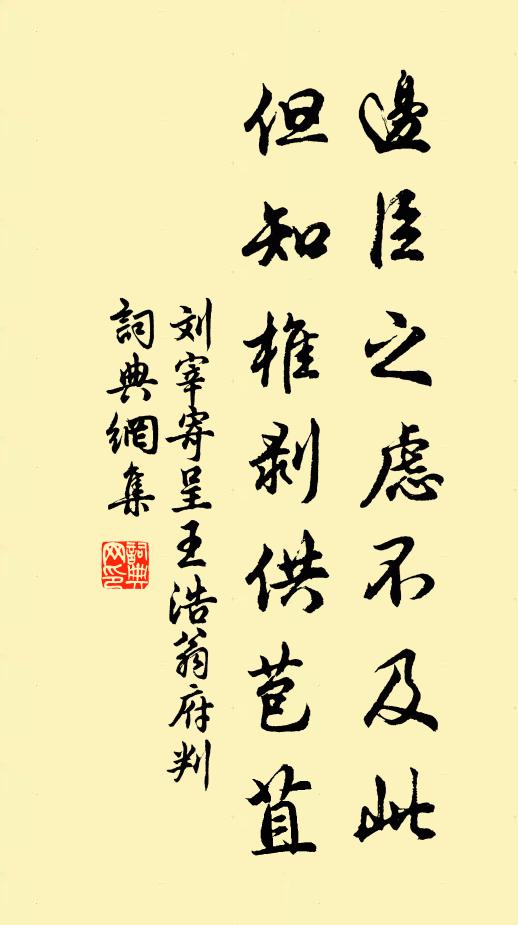 邊臣之慮不及此
但知椎剥供苞苴
刘宰寄呈王浩翁府判
詞典網集
詞典网印